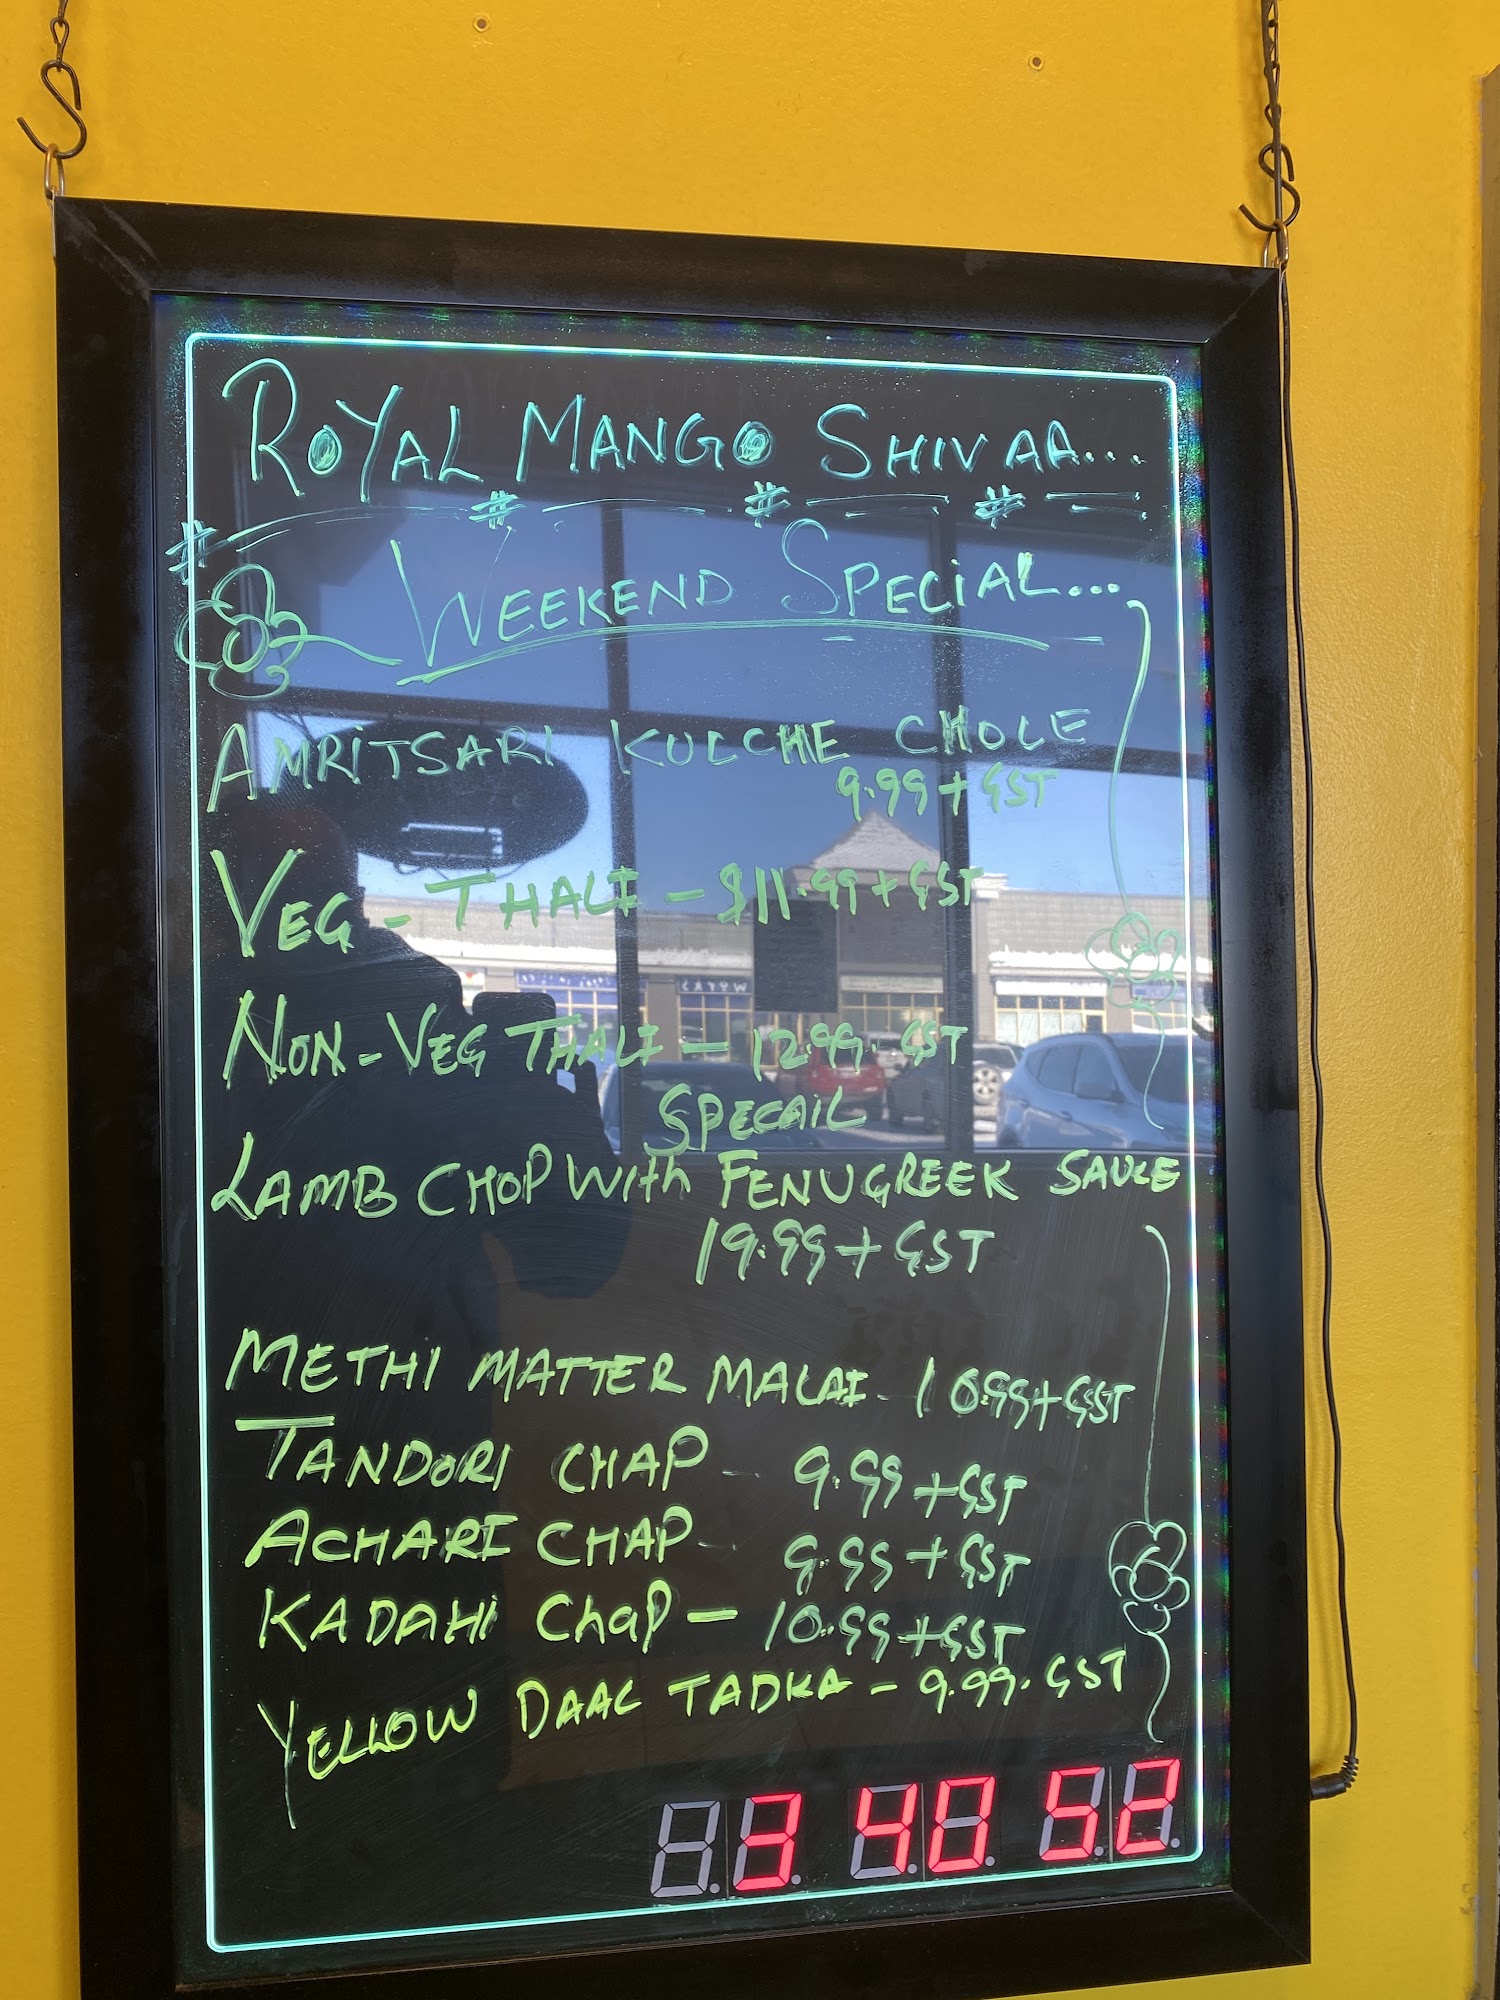 ROYAL MANGO SHIVAA...
# # # #
WEEKEND SPECIAL...
AMRITSARI KULCHE CHOLE
9.99 + GST
VEG - THALI - $11.99 + GST
NON-VEG THALI - 12.99. GST
SPECAIL
LAMB CHOP With FENUGREEK SAUCE
19.99 + GST
METHI MATTER MALAI - 10.99 + GST
TANDORI CHAP - 9.99 + GST
ACHARI CHAP - 9.99 + GST
KADAHI ChaP - 10.99 + GST
YELLOW DAAL TADKA - 9.99. GST
3 40 52